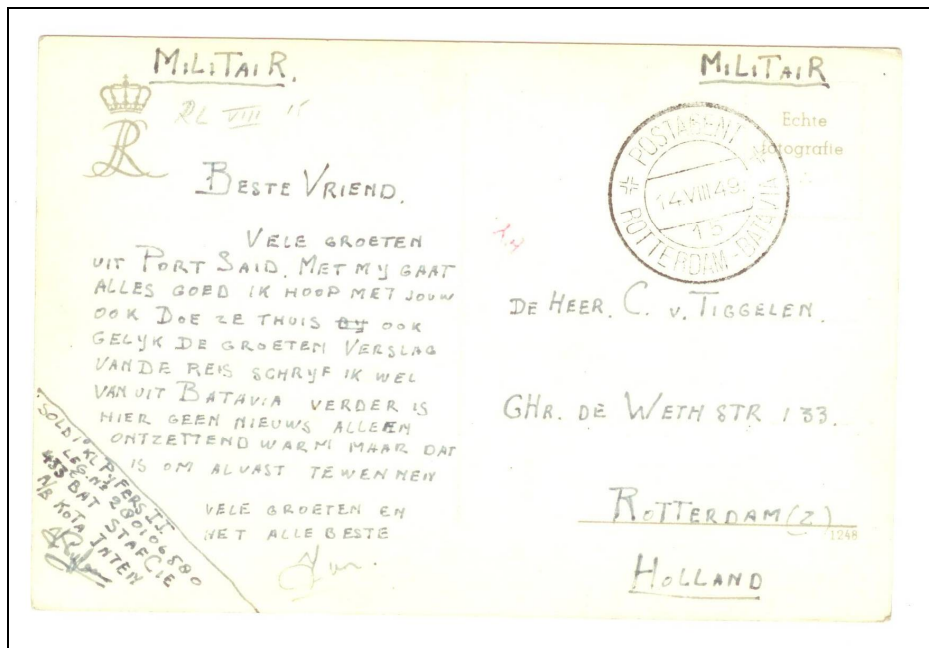 MILITAIR.
RL VIII 15
BESTE VRIEND.
VELE GROETEN
UIT PORT SAID. MET MY GAAT
ALLES GOED IK HOOP MET JOUW
OOK DOE ZE THUIS OOK
GELYK DE GROETEN VERSLAG
VANDE REIS SCHRYF IK WEL
VAN UIT BATAVIA VERDER IS
HIER GEEN NIEUWS ALLEEN
ONTZETTEND WARM MAAR DAT
IS OM ALVAST TE WENNEN
VELE GROETEN EN
HET ALLE BESTE
SOLD 1e KL PYFERS I.J.
LEG. No 280106580
433 BAT STAFCIE
A/B KOTA INTEN
MILITAIR
Echte
fotografie
POSTAGENT
14 VIII 49.
15
ROTTERDAM - BATAVIA
DE HEER. C. v. TIGGELEN.
GHR. DE WETH STR 133.
ROTTERDAM (Z)
1248
HOLLAND